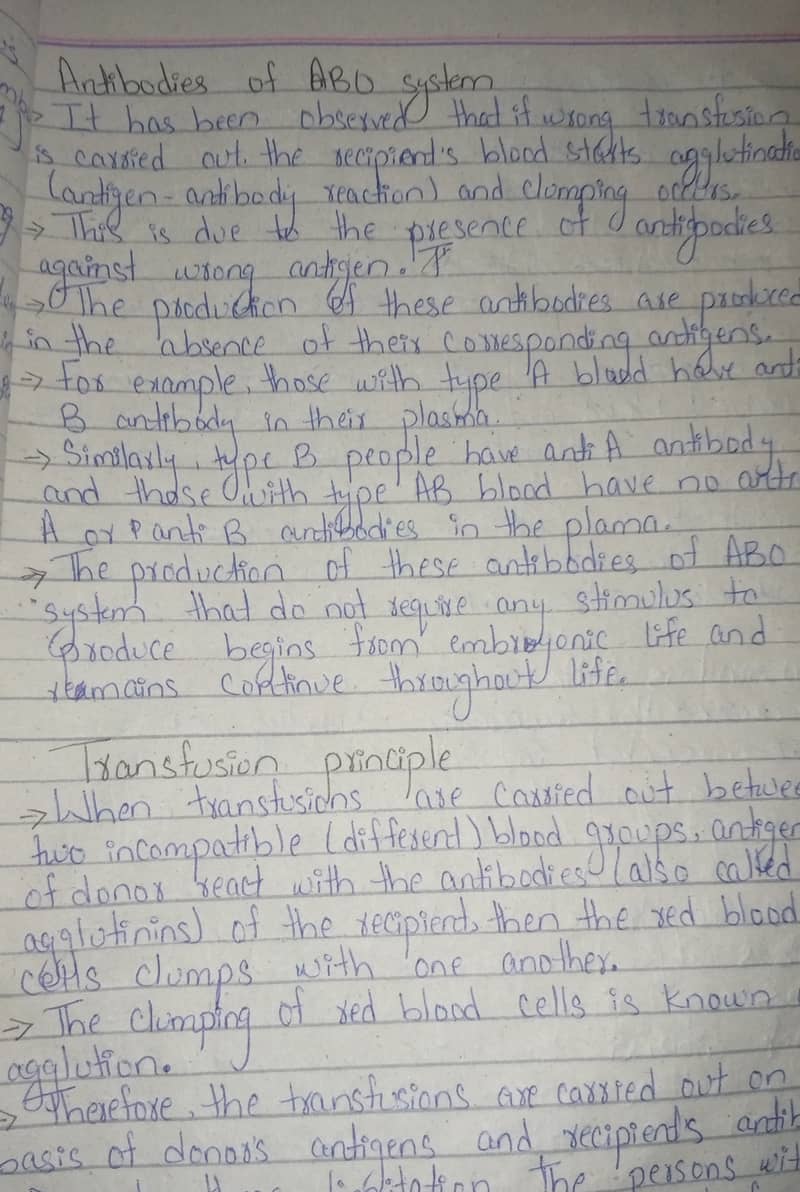 Antibodies of ABO system
→ It has been observed that if wrong transfusion
is carried out, the recipient's blood starts agglutinatio
(antigen-antibody reaction) and clumping occurs.
→ This is due to the presence of antibodies
against wrong antigen.
→ The production of these antibodies are produced
in the absence of their corresponding antigens.
→ For example, those with type A blood have anti
B antibody in their plasma.
→ Similarly, type B people have anti A antibody
and those with type AB blood have no anti
A or anti B antibodies in the plama.
→ The production of these antibodies of ABO
system that do not require any stimulus to
produce begins from embryonic life and
remains continue throughout life.
Transfusion principle
→ When transfusions are carried out betwee
two incompatible (different) blood groups, antigen
of donor react with the antibodies (also called
agglutinins) of the recipient, then the red blood
cells clumps with one another.
→ The clumping of red blood cells is known
agglution.
→ Therefore, the transfusions are carried out on
basis of donor's antigens and recipient's antib
The persons wit